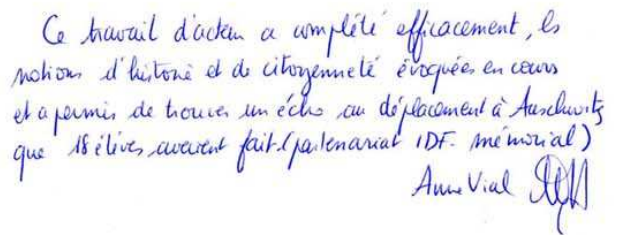 Ce travail d'acteur a complété efficacement, les
notions d'histoire et de citoyenneté évoquées en cours
et a permis de trouver un écho au déplacement à Auschwitz
que 18 élèves avaient fait. (partenariat IDF. mémorial)
Anne Vial